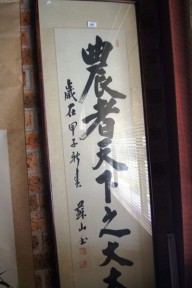 農者天下之大本
歲在甲子新春 蘇山書